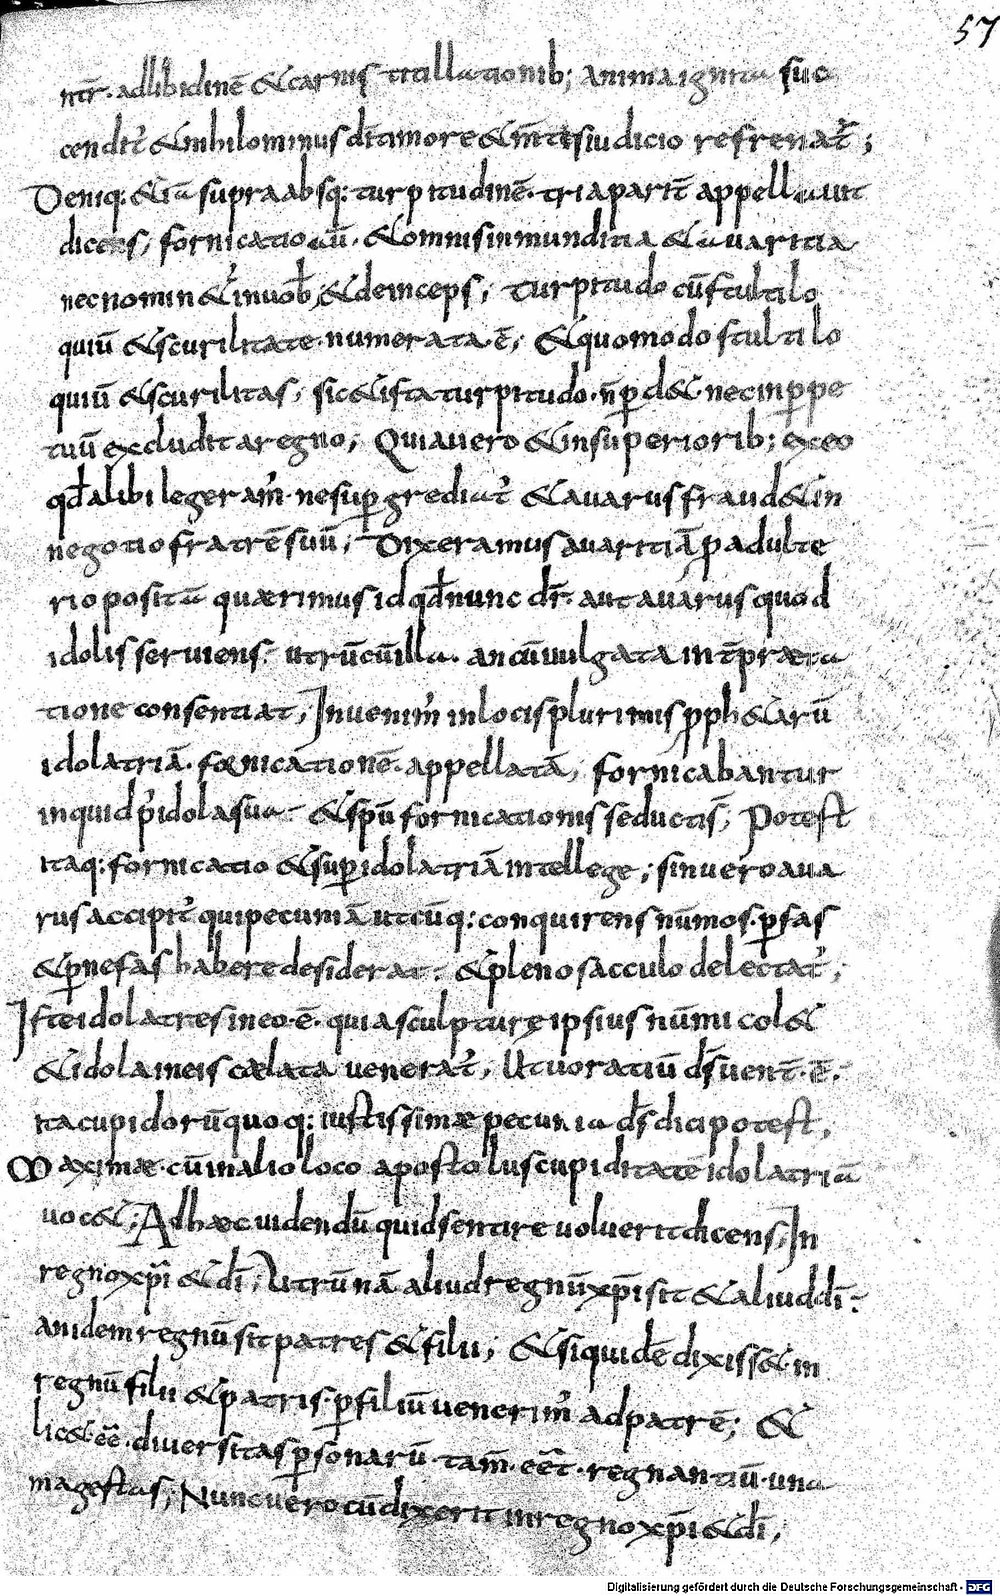 57
nr̄r. adlibidinē & carnis titillationib; anima ignita suc
cendit᷒ & nihilominus dī amore & m̄tis iudicio refrenat᷒;
Deniq: & iā supra absq: turpitudinē. tria pariṫ appellauit
dicens, fornicatio aū. & omnis inmunditia & auaritia
nec nomin&᷒ inuob̄, & deinceps; turpitudo cū stultilo
quiū & scurilitate. numerata. ē; & quomodo stultilo
quiū & scurilitas; sic & ista turpitudo. n̄ ꝑd&. nec inꝑpe
tuū excludit aregno; Quia uero & insuperiorib; exeo
qd̄ alibi legeram᷒. ne suꝑgrediat᷒ & auarus fraud& in
negotio fratrē suū; Dixeramus auaritiā ꝓ adulte
rio positā quærimus id qd̄ nunc dr̄. aut auarus quod
idolis seruiens. utrū cū illa. an cū uulgata int̄præta
tione consentiat; Inuenim᷒ inlocis plurimis ꝓph&arū
idolatriā. fornicationē. appellatā; fornicabantur
inquid p᷒ idola sua. & spū fornicationis seductis̄; Potest
itaq: fornicatio & suꝑ idolatriā intellege; sin uero aua
rus accipit᷒ qui pecuniā utcūq: conquirens nūmos. ꝑ fas
& ꝑ nefas habere desiderat. & pleno sacculo delectat᷒;
Iste idolatres ineo. ē. quia sculpturę ipsius nūmi col&
& idola ineis cælata uenerat᷒; Ut uoratiū ds̄ uent̄. ē.
ita cupidorū quoq: iustissimæ pecunia ds̄ dici potest;
Maximæ. cū inalio loco apostolus cupiditatē idolatriā
uoc&; Adhæc uidendū quid sentire uoluerit dicens; In
regno xp̄i & dī; Utrū nā aliud regnū xp̄i sit & aliud dī.
an idem regnū sit patres & filii; & siquidē dixiss&. in
regnū filii & patris. ꝑ filiū uenerim᷒ ad patrē; &
lic& ēē. diuersitas ꝑsonarū. tam̄. eēt̄. regnantiū. una
magestas; Nunc uero cū dixerit inregno xp̄i & dī;
Digitalisierung gefördert durch die Deutsche Forschungsgemeinschaft - DFG